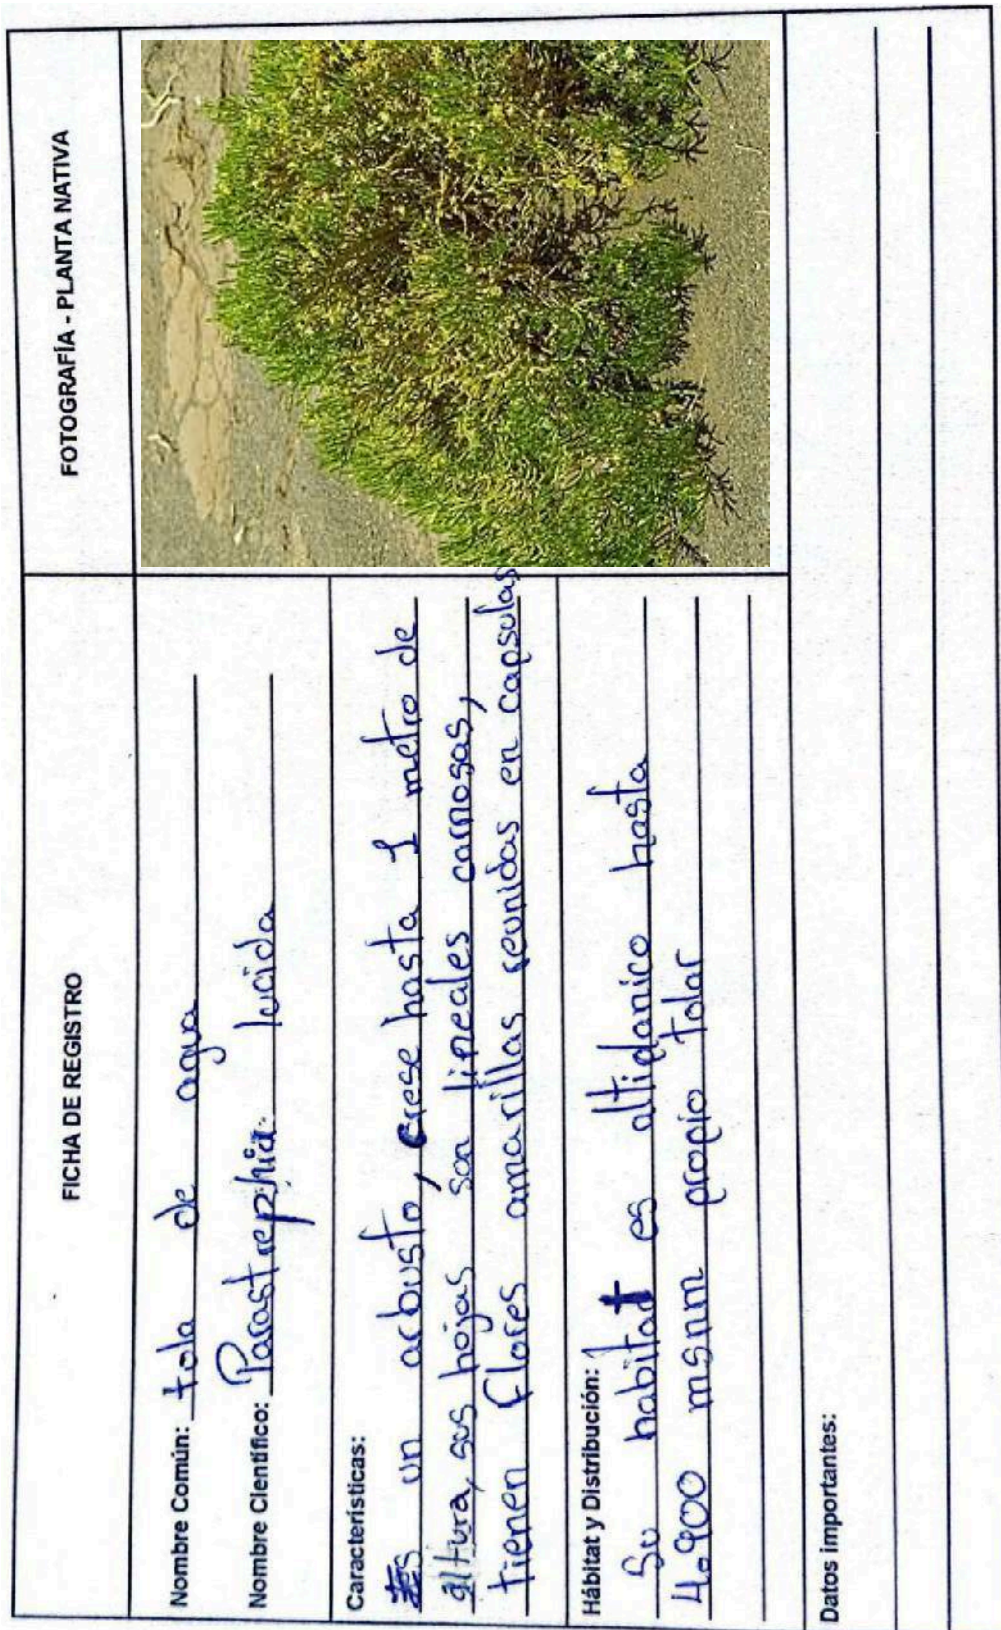 FICHA DE REGISTRO
FOTOGRAFÍA - PLANTA NATIVA
Nombre Común: tola de agua
Nombre Científico: Parastrephia lucida
Características:
Es un arbusto, crese hasta 1 metro de
altura, sus hojas son lineales carnosas,
tienen flores amarillas reunidas en capsulas
Hábitat y Distribución:
Su habitat es altidanico hasta
4.900 msnm propio tolar
Datos importantes: